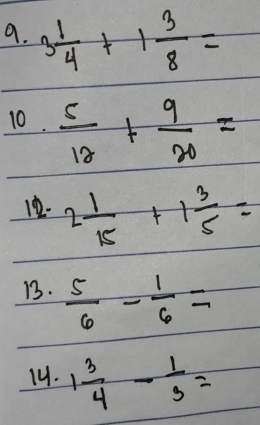 9. 3 1/4 + 1 3/8 =
10. 5/12 + 9/20 =
12. 2 1/15 + 1 3/5 =
13. 5/6 - 1/6 =
14. 1 3/4 - 1/3 =